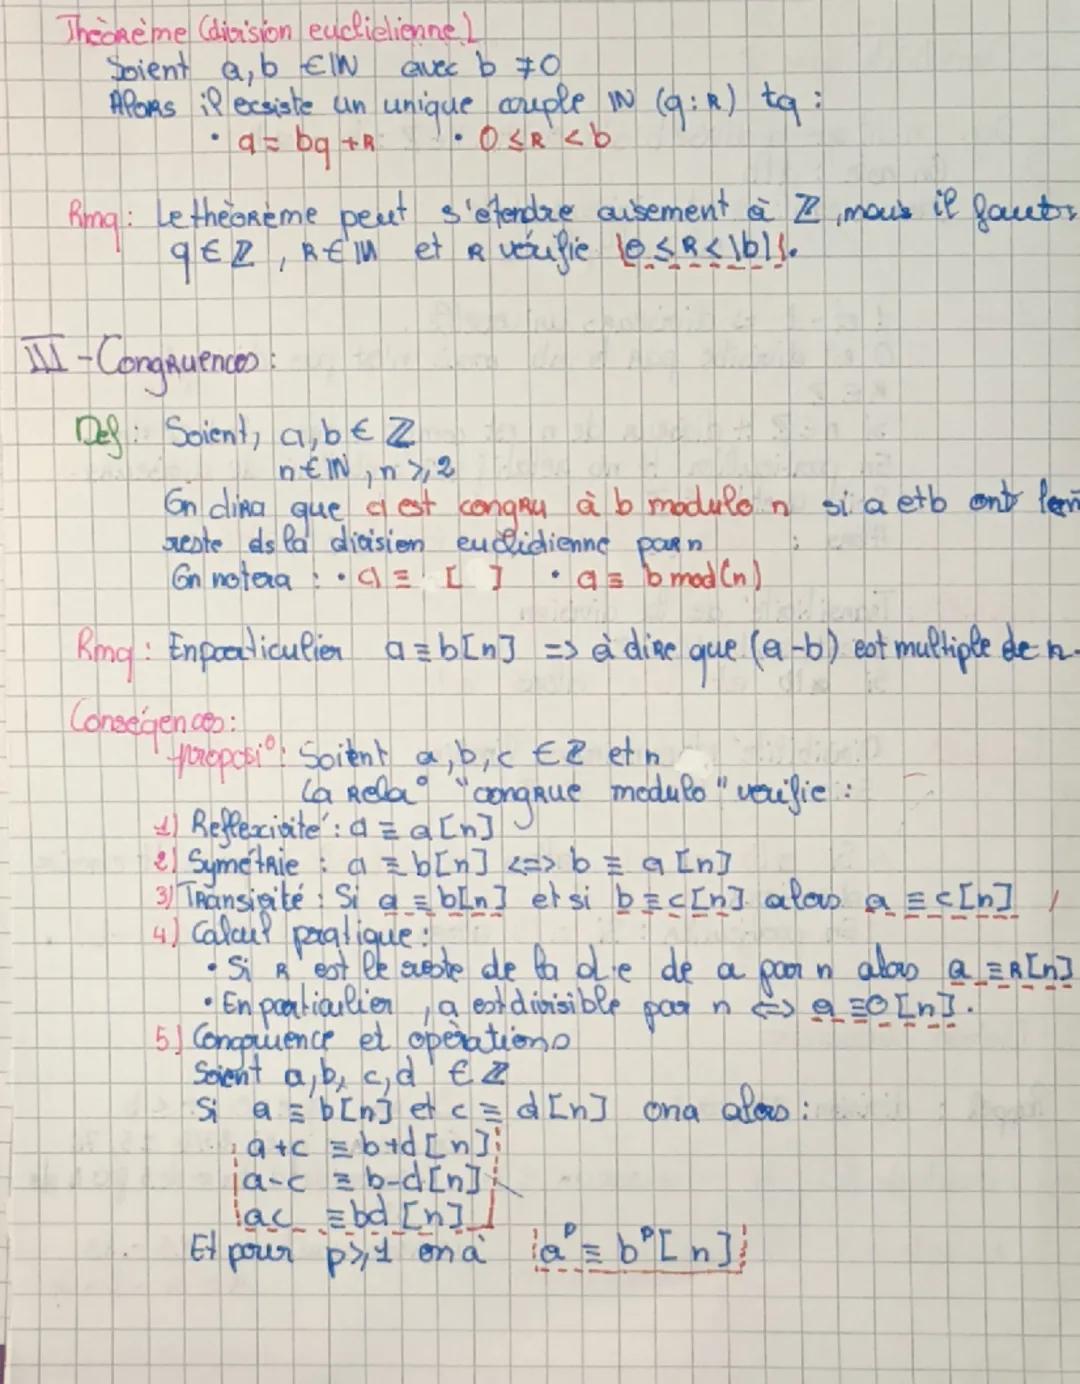 Théorème (division euclidienne)
Soient a, b ∈ ℕ avec b ≠ 0
Alors il existe un unique couple ℕ (q:R) tq :
• a = bq + R • 0 ≤ R < b
Rmq : Le théorème peut s'étendre aisement à ℤ, mais il faut
q ∈ ℤ, R ∈ ℕ et R vérifie |0 ≤ R < |b||.
III - Congruences :
Def : Soient, a, b ∈ ℤ
n ∈ ℕ, n ≥ 2
On dira que a est congru à b modulo n si a et b ont
reste ds la division euclidienne par n
On notera : • a ≡ [ ] • a ≡ b mod(n)
Rmq : En particulier a ≡ b[n] => à dire que (a-b) est multiple de n.
Conséqences :
proposi° : Soient a, b, c ∈ ℤ et n
La Rela° "congrue modulo" verifie :
1) Reflexivité : a ≡ a[n]
2) Symétrie : a ≡ b[n] <=> b ≡ a [n]
3) Transivité : Si a ≡ b[n] et si b ≡ c[n] alors a ≡ c[n]
4) Calcul pratique :
• Si R est le reste de la d.e de a par n alors a ≡ R[n]
• En particulier, a est divisible par n <=> a ≡ 0 [n].
5) Congruence et opérations
Soient a, b, c, d ∈ ℤ
Si a ≡ b[n] et c ≡ d[n] ona alors :
a+c ≡ b+d[n]
a-c ≡ b-d[n]
ac ≡ bd [n]
Et pour p ≥ 1 on à aᵖ ≡ bᵖ[n]